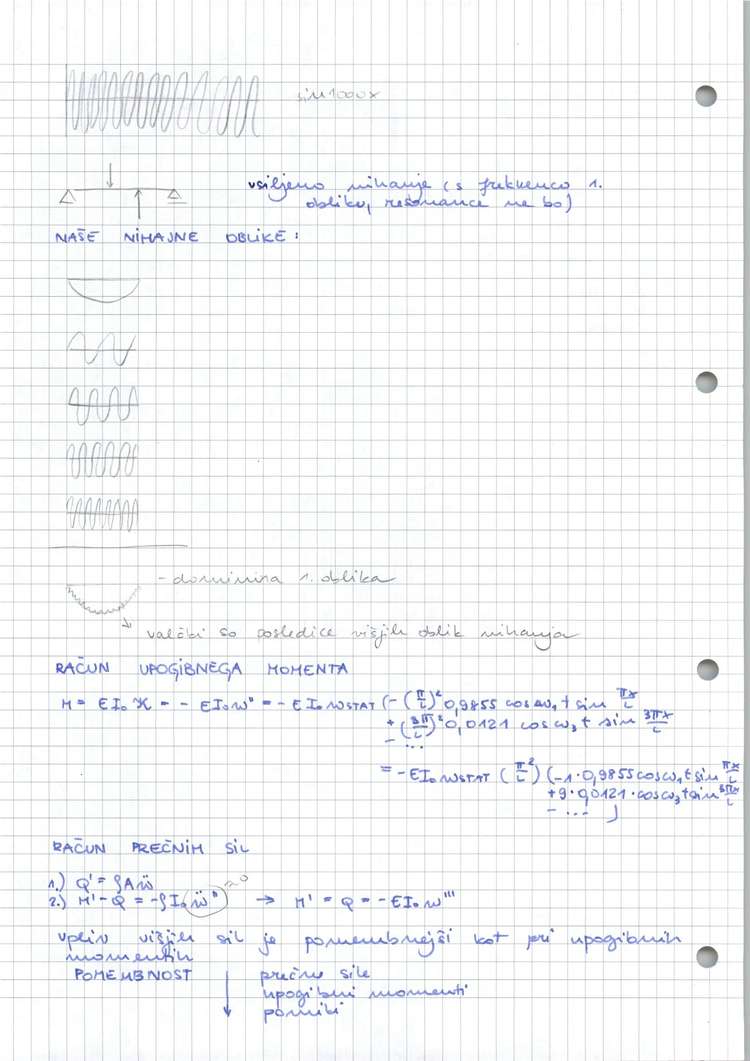 sin 1000x
vsiljeno nihanje (s frekvenco 1.
obliko, resonance ne bo)
NAŠE NIHAJNE OBLIKE:
- dominira 1. oblika
valčki so posledice višjih oblik nihanja
RAČUN UPOGIBNEGA MOMENTA
M = EI₀ ϰ = - EI₀w" = - EI₀ wSTAT (-(π/L)² 0,9855 cos ω₁ t sin πx/L
+ (3π/L)² 0,0121 cos ω₃ t sin 3πx/L
- ...
= - EI₀ wSTAT (π/L)² (-1·0,9855 cos ω₁ t sin πx/L
+9·0,0121·cos ω₃ t sin 3πx/L
- ... )
RAČUN PREČNIH SIL
1.) Q' = ρAẅ
2.) M' - Q = -ρI₀ẅ' ≈0 → M' = Q = -EI₀w'''
vpliv višjih sil je pomembnejši kot pri upogibnih
momentih
POMEMBNOST prečne sile
upogibni momenti
pomiki